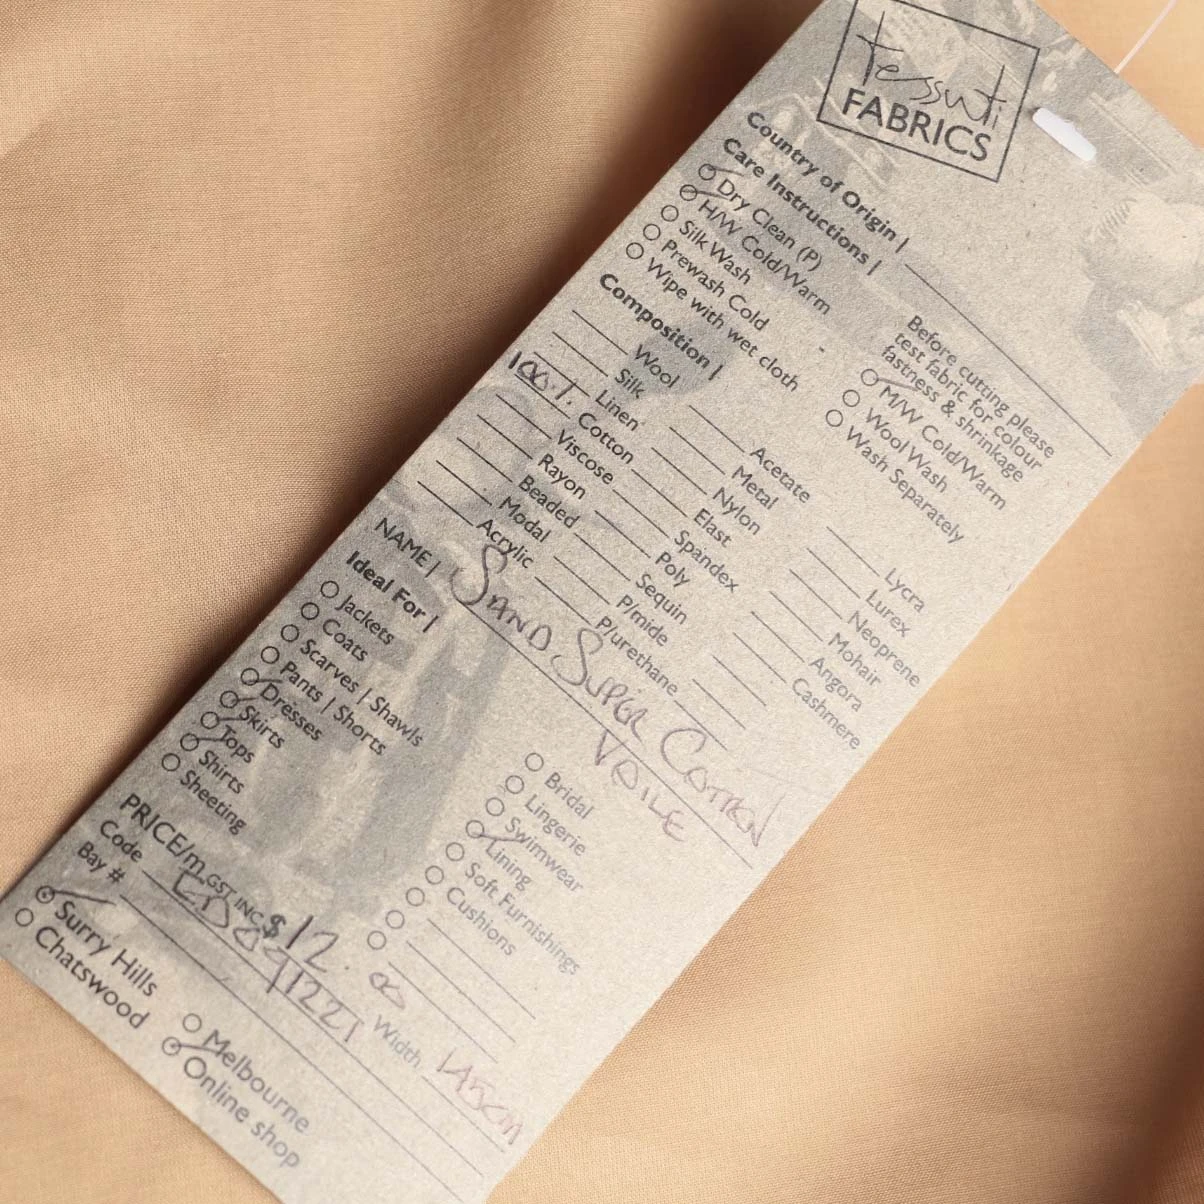 tessuti
FABRICS
Country of Origin |
Care Instructions |
Dry Clean (P)
H/W Cold/Warm
Silk Wash
Prewash Cold
Wipe with wet cloth
Before cutting please
test fabric for colour
fastness & shrinkage
M/W Cold/Warm
Wool Wash
Wash Separately
Composition |
Wool Acetate Lycra
Silk Metal Lurex
Linen Nylon Neoprene
100% Cotton Elast Mohair
Viscose Spandex Angora
Rayon Poly Cashmere
Beaded Sequin
Modal P/mide
Acrylic P/urethane
NAME | SAND SUPER COTTON
VOILE
Ideal For |
Jackets Bridal
Coats Lingerie
Scarves | Shawls Swimwear
Pants | Shorts Lining
Dresses Soft Furnishings
Skirts Cushions
Tops
Shirts
Sheeting
PRICE/m GST INC $ 12.00
Code
Width 145cm
Bay #
Surry Hills Melbourne
Chatswood Online shop